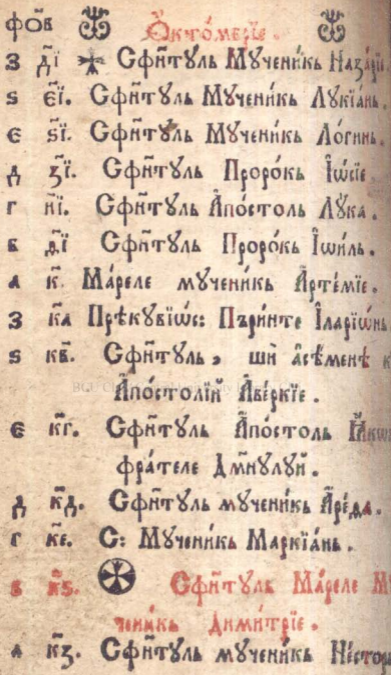 фѻ҃в Ѻ҆ктѡ́мврїе.
з д҃і Сфн҃тꙋль Мꙋчени́кь Наза́рїе
ѕ є҃ї. Сфн҃тꙋль Мꙋчени́кь Лꙋкїа́нь
є ѕ҃ї. Сфн҃тꙋль Мꙋчени́кь Ло́гинь.
д з҃ї. Сфн҃тꙋль Проро́кь І҆ѡсі́е.
г и҃ї. Сфн҃тꙋль А҆по́столь Лꙋка.
в ѳ҃ї Сфн҃тꙋль Проро́кь І҆ѡи́ль.
а к҃. Ма́реле мꙋчени́кь А҆рте́мїе.
з к҃а Прѣкꙋвїѡ́с: Пъри́нте І҆ларїѡ́нь
ѕ к҃в. Сфн҃тꙋль, ши а҆се́мене
А҆по́столїй А҆ве́ркїе.
є к҃г. Сфн҃тꙋль А҆по́столь
фра́теле Дмн҃ꙋлꙋй.
д к҃д. Сфн҃тꙋль мꙋчени́кь А҆ре́ѳа.
г к҃є. С: Мꙋчени́кь Маркїа́нь.
в к҃ѕ. Сфн҃тꙋль Ма́реле Мꙋ
чени́кь Дими́трїе.
а к҃з. Сфн҃тꙋль мꙋчени́кь Не́стор